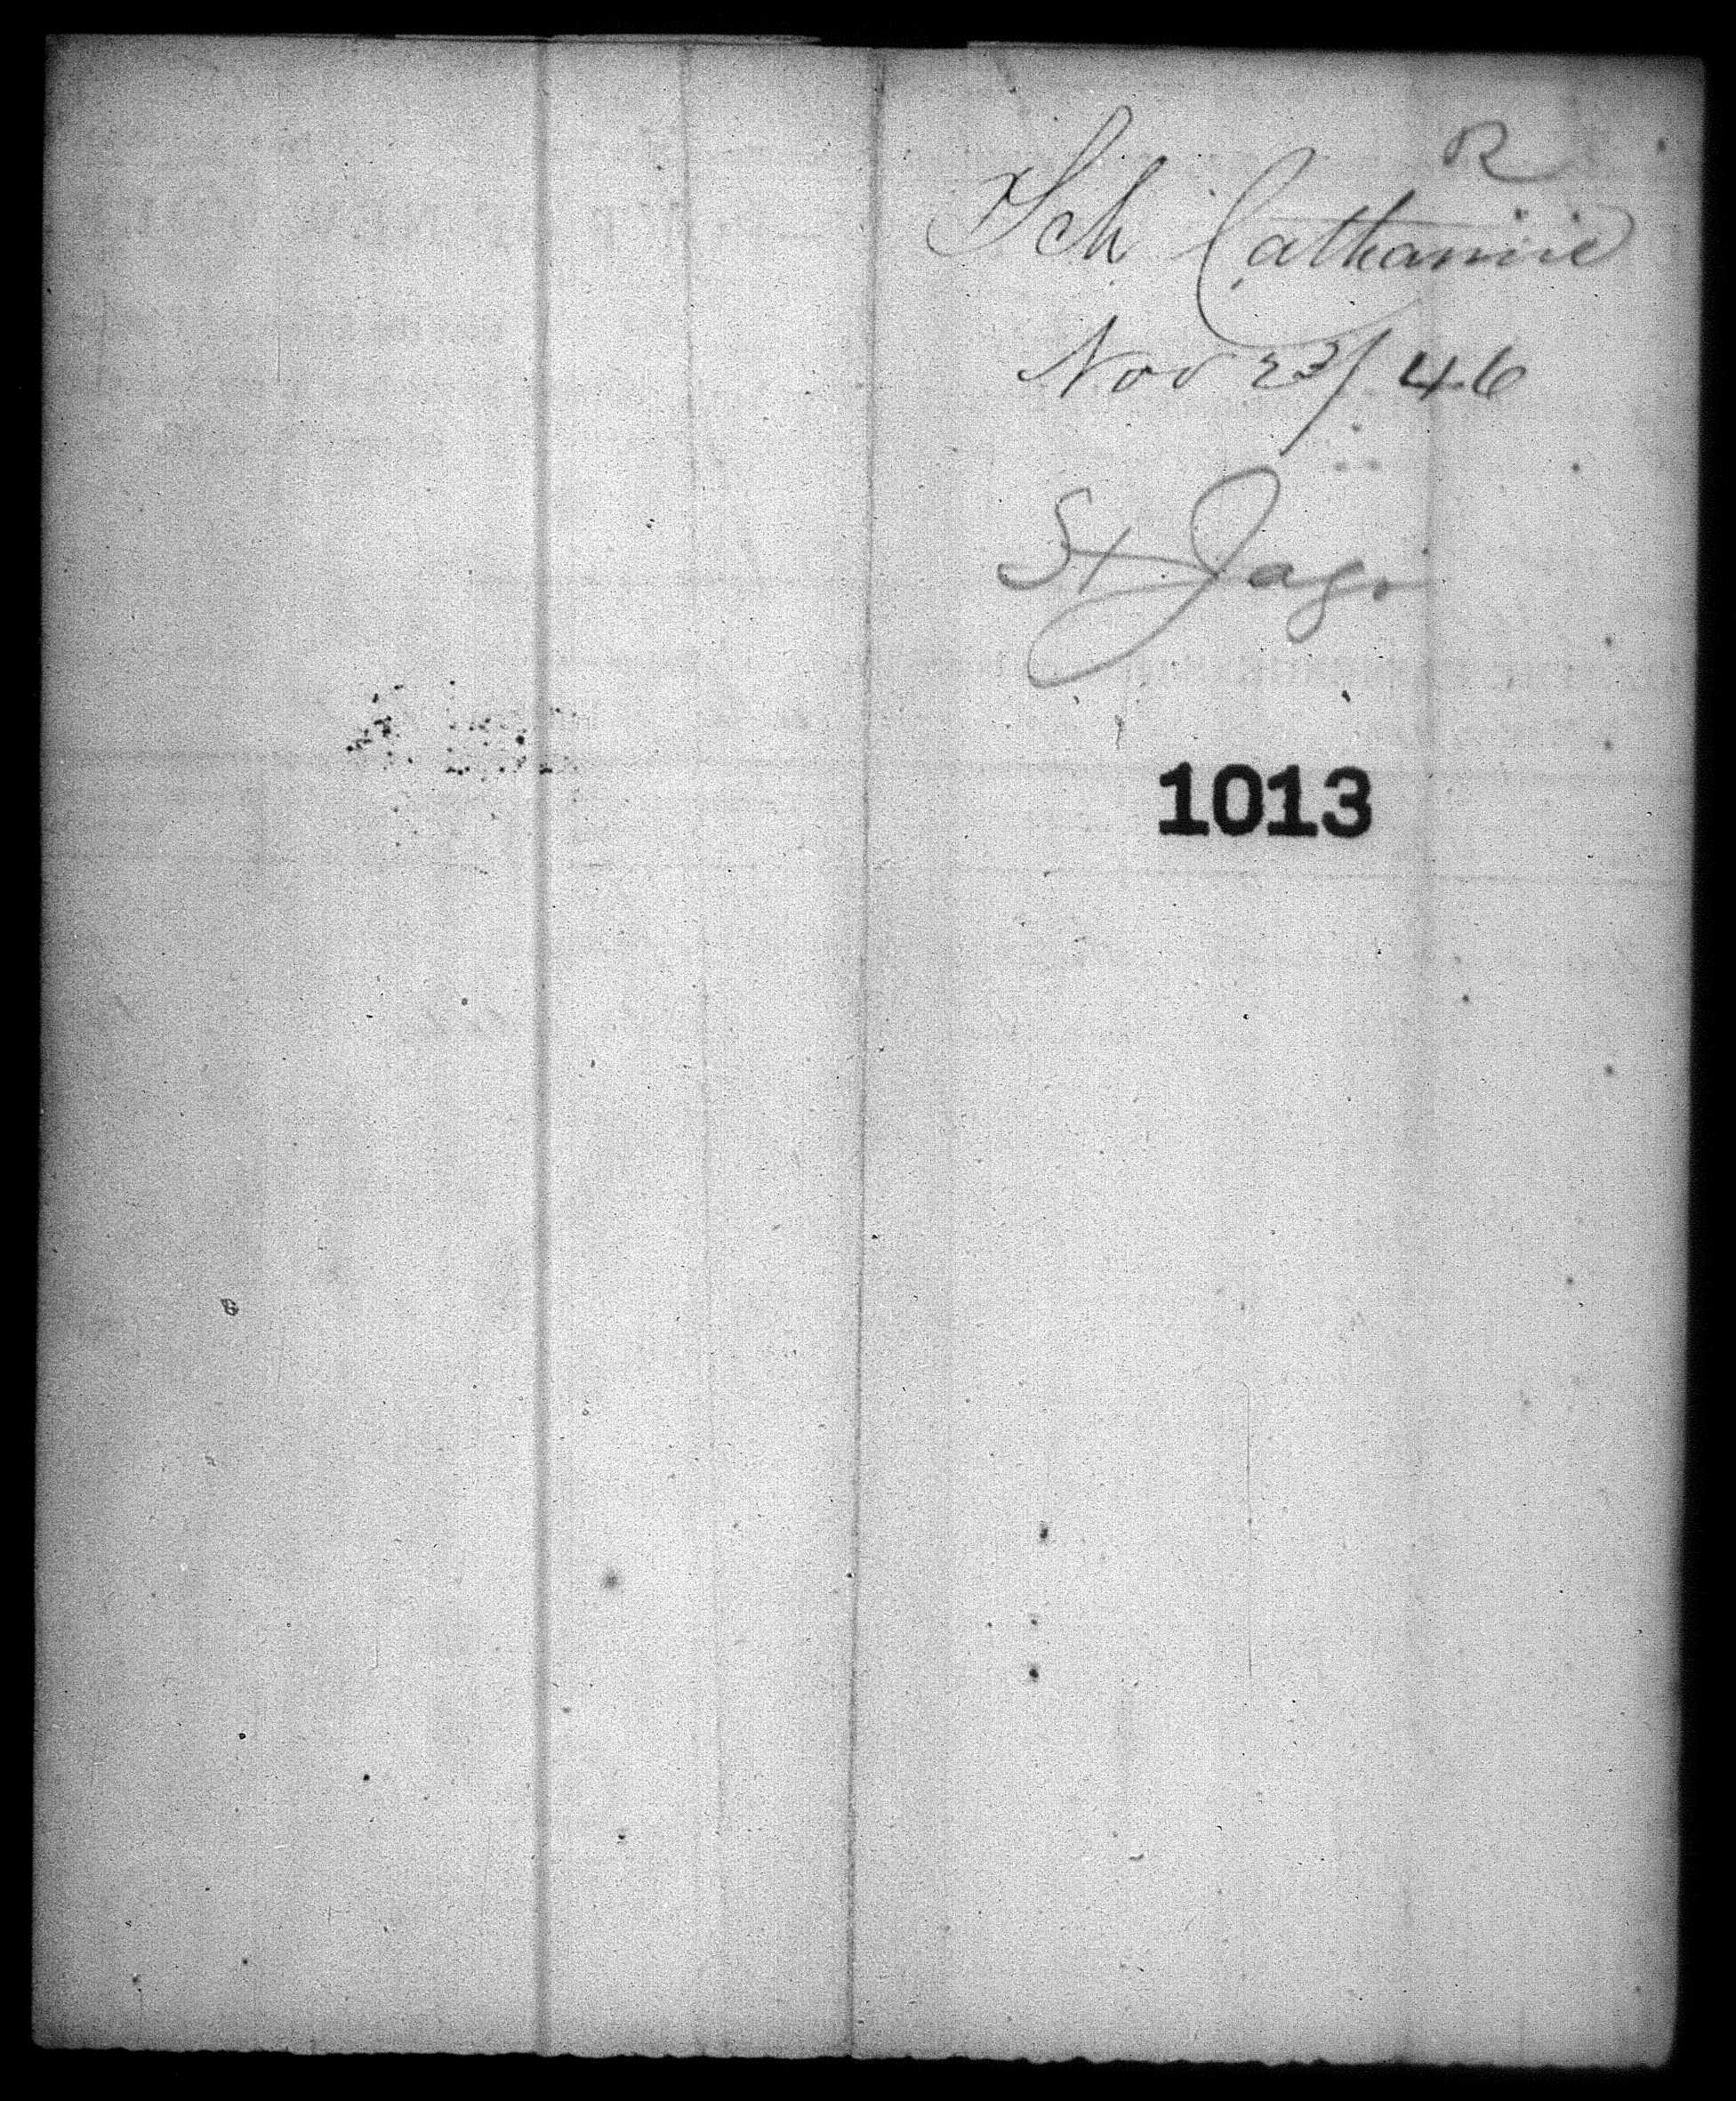 R
Sch Catharine
Nov 23/46
St Jago
1013